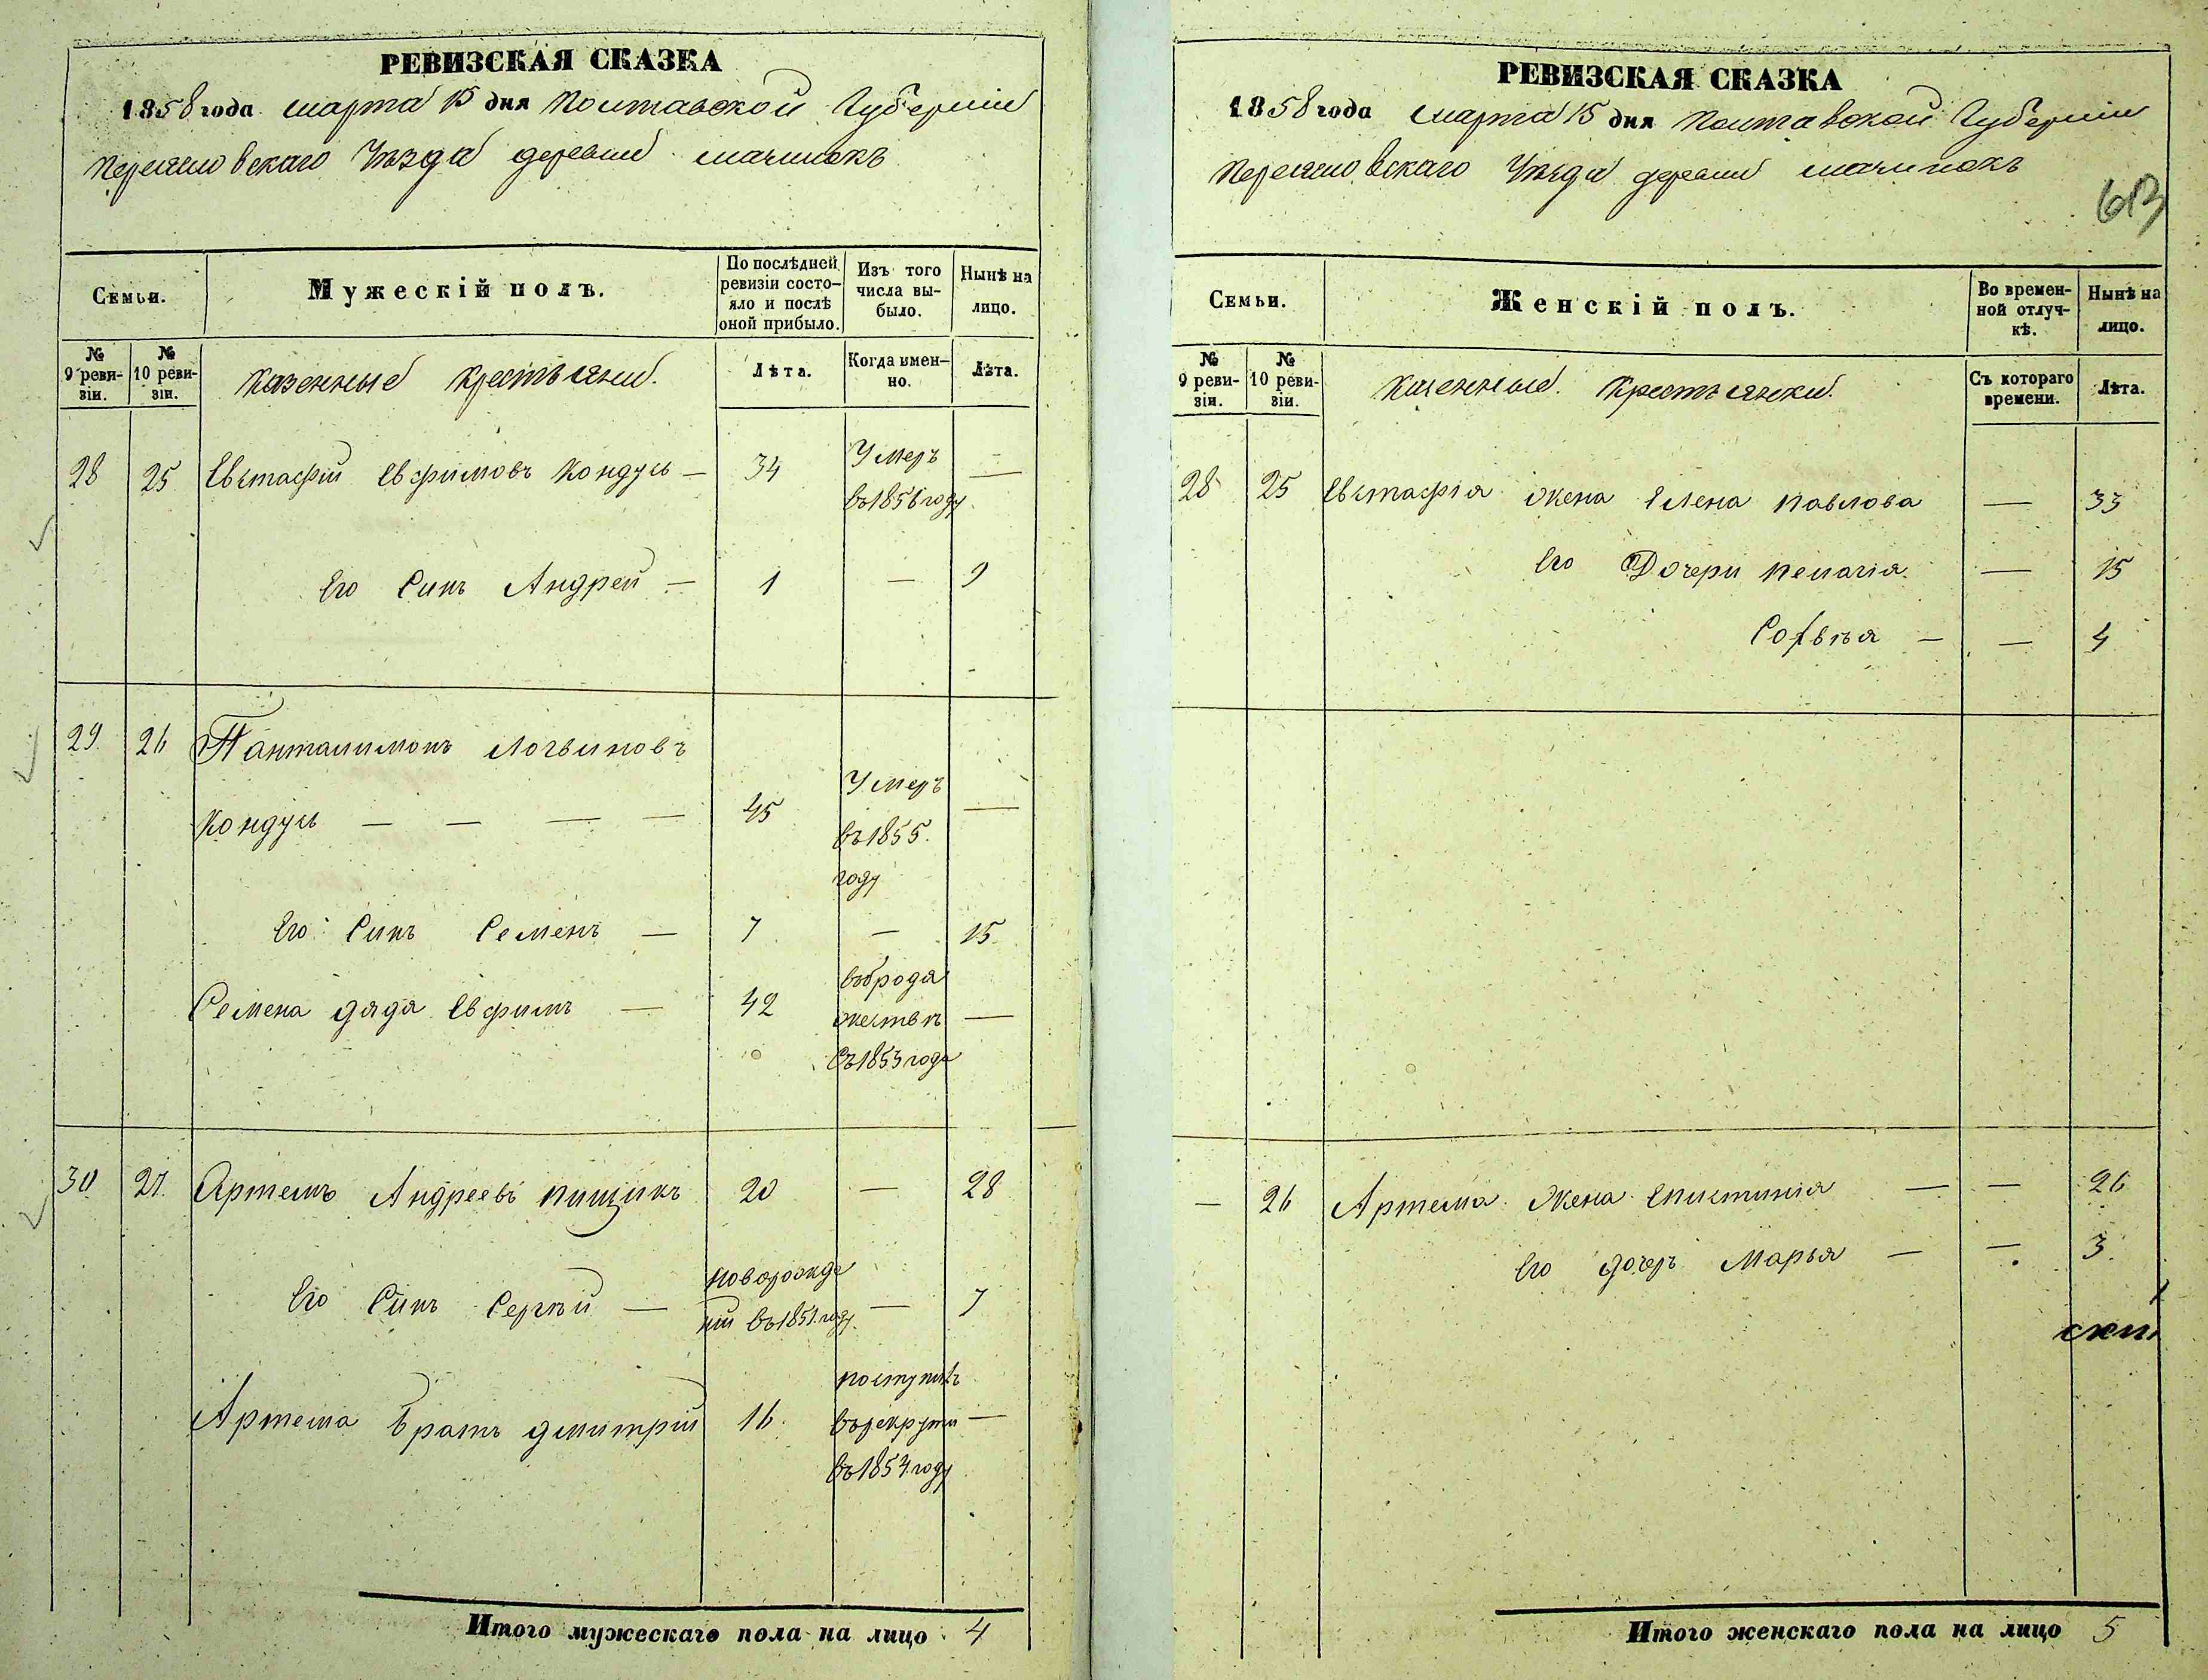 РЕВИЗСКАЯ СКАЗКА
1858 года марта 15 дня Полтавской Губерніи
Переяславскаго Уѣзда деревни
Семьи.
Мужескій полъ.
По послѣдней ревизіи состо-
яло и послѣ
оной прибыло.
Изъ того
числа вы-
было.
Нынѣ на
лицо.
№
9 реви-
зіи.
№
10 реви-
зіи.
Казенные Крестьяни.
Лѣта.
Когда имен-
но.
Лѣта.
28 25 Евстафій Евфимовъ Кондусь — 34 Умеръ —
въ 1856 году.
Его Синъ Андрей — 1 — 9
29. 26 Панталимонъ Логвиновъ
Кондусь — — — — 45 Умеръ —
въ 1855.
году
Его Синъ Семенъ — 7 — 15.
Семена дядя Евфимъ — 42 въ брода
жествѣ —
съ 1853 года
30. 27. Артемъ Андреевъ Пищикъ 20 — 28
Его Синъ Сергѣй — новорожде
ній въ 1851. году. — 7
Артема братъ Дмитрій 16. поступилъ
въ рекрути —
въ 1854 году.
Итого мужескаго пола на лицо 4
РЕВИЗСКАЯ СКАЗКА
1858 года марта 15 дня Полтавской Губерніи
Переяславскаго Уѣзда деревни
613
Семьи.
Женскій полъ.
Во времен-
ной отлуч-
кѣ.
Нынѣ на
лицо.
№
9 реви-
зіи.
№
10 реви-
зіи.
Казенные Крестьянки.
Съ котораго
времени.
Лѣта.
28 25 Евстафія жена Елена Павлова — 33
Его Дочери Пелагія. — 15
Софвія — — 4
— 26 Артема Жена Епистинія — — 26
Его дочерь Марья — — 3.
Итого женскаго пола на лицо 5